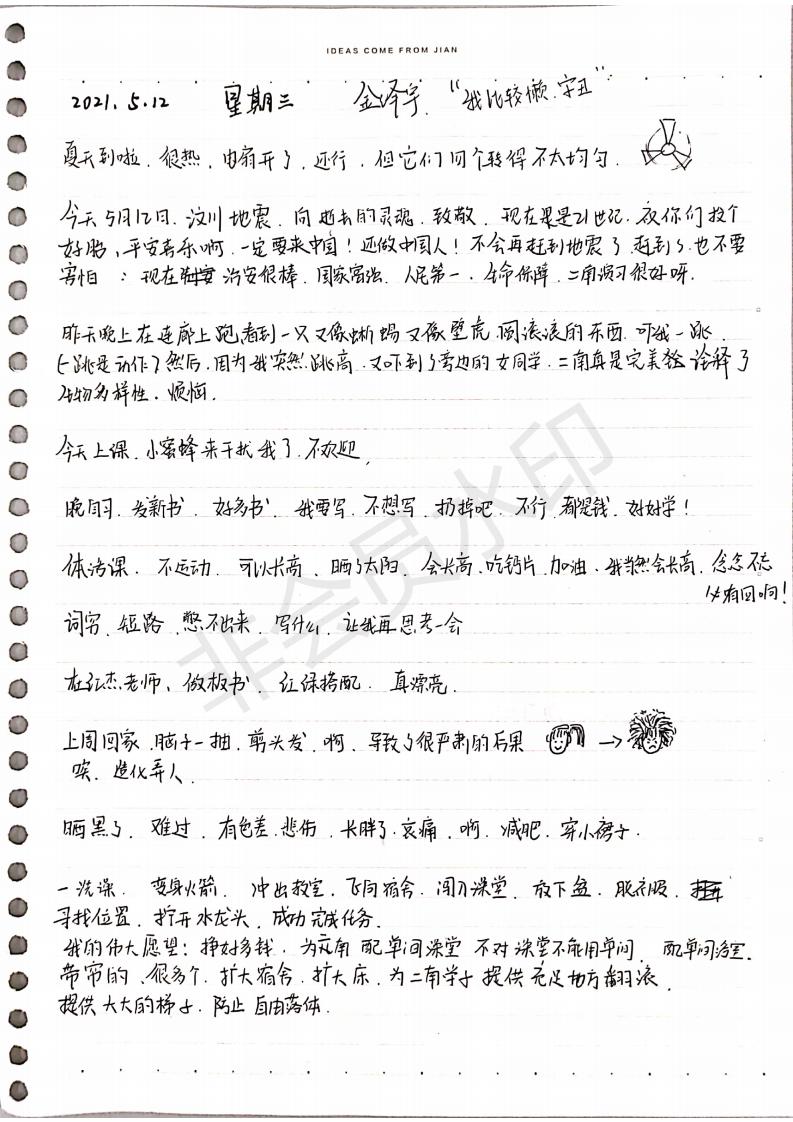 IDEAS COME FROM JIAN
2021.5.12 星期三 金泽宇 “我比较懒.字丑”
夏天到啦.很热.电扇开了.还行.但它们四个转得不太均匀.
今天5月12日.汶川地震.向逝去的灵魂.致敬.现在是21世纪.祝你们投个
好胎.平安喜乐啊.一定要来中国!还做中国人!不会再赶到地震了.赶到了也不要
害怕:现在治安很棒.国家富强.人民第一.生命保障.二南演习很好呀.
昨天晚上在连廊上跑看到一只又像蜥蜴又像壁虎圆滚滚的东西.吓我一跳.
(跳是动作)然后.因为我突然跳高.又吓到了旁边的女同学.二南真是完美诠释了
生物多样性.烦恼.
今天上课.小蜜蜂来干扰我了.不欢迎.
晚自习.发新书.好多书.我要写.不想写.扔掉吧.不行.都是钱.好好学!
体活课.不运动.可以长高.晒了太阳.会长高.吃钙片.加油.我当然会长高.念念不忘
必有回响!
词穷.短路.憋不出来.写什么.让我再思考一会
在红杰老师、做板书.红绿搭配.真漂亮.
上周回家.脑子一抽.剪头发.啊.导致了很严肃的后果 →
唉.造化弄人.
晒黑了.难过.有色差.悲伤.长胖了.哀痛.啊.减肥.穿小裙子.
一洗澡.变身火箭.冲出教室.飞向宿舍.闯入澡堂.放下盆.脱衣服.
寻找位置.拧开水龙头.成功完成任务.
我的伟大愿望:挣好多钱.为二南配单间澡堂 不对 澡堂不能用单间.配单间浴室.
带帘的.很多个.扩大宿舍.扩大床.为二南学子提供充足地方翻滚.
提供大大的梯子.防止自由落体.
非会员水印